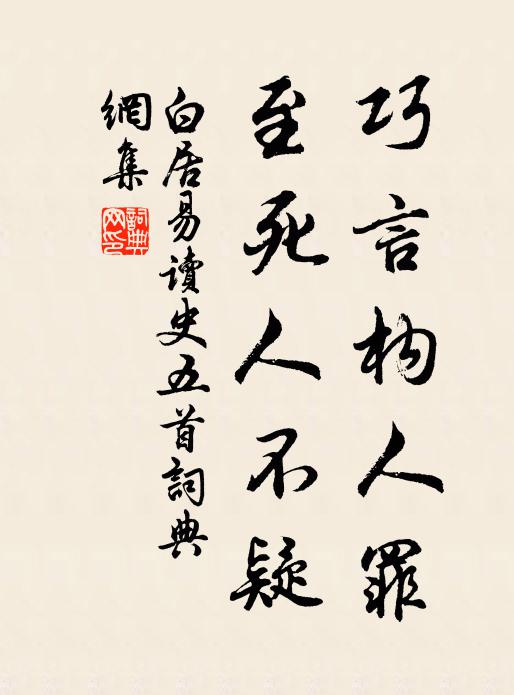 巧言构人罪
至死人不疑
白居易讀史五首詞典
網集
詞典
网印